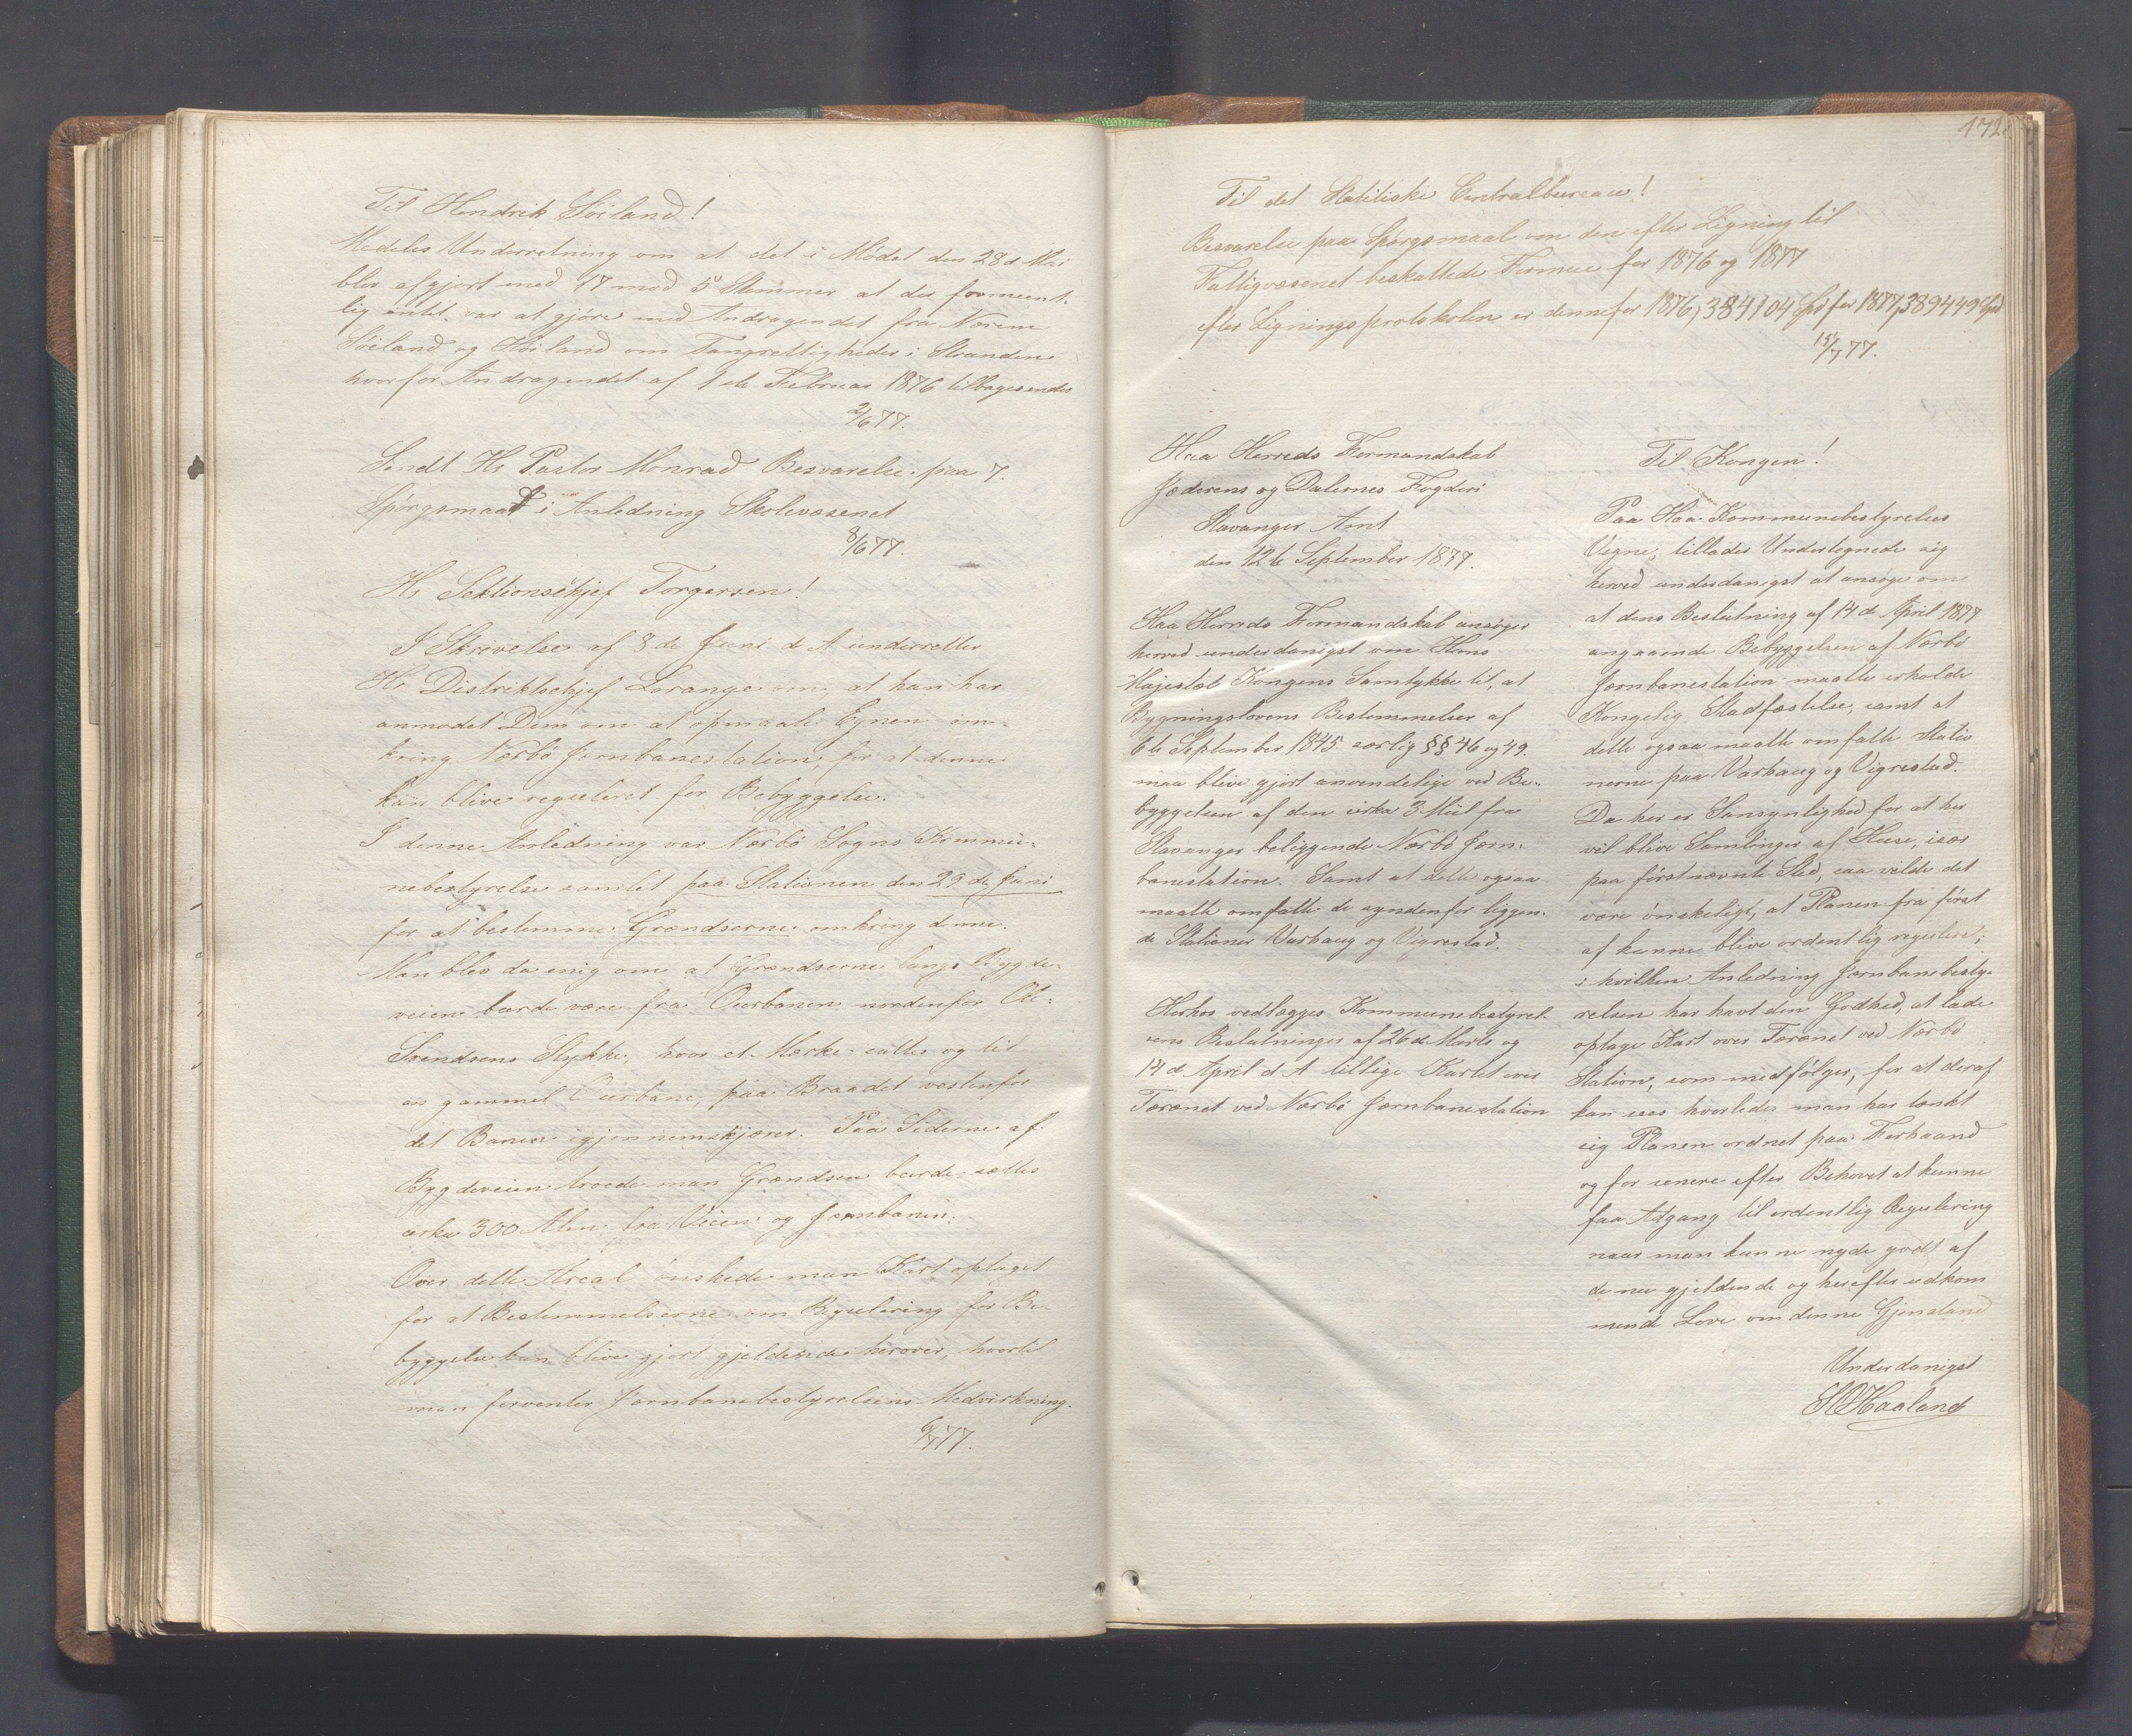 Til Hendrik Söiland!
Meddeles Underretning om at det i Mödet den 28de Mai
blev afgjort med 17 mod 5 Stemmer at der formeent-
lig intet var at gjöre med Andragendet fra Narem
Söiland og Höiland om Tangrettigheder i Stranden
hvorfor Andragendet af 1ste Februar 1876 tilbagesendes
2/6 77.
Sendt Hr Pastor Monrad Besvarelse paa 7.
Spörgsmaal i Anledning Skolevæsenet
8/6 77.
Hr Sektionschef Torgersen!
I Skrivelse af 8de Juni d A underretter
Hr Distriktschef Lorange om, at han har
anmodet Dem om at opmaale Egnen om-
kring Nærbö Jernbanestation for at denne
kan blive reguleret for Bebyggelse.
I denne Anledning var Nærbö Sogns Kommu-
nebestyrelse samlet paa Stationen den 29de Juni
for at bestemme Grændserne omkring denne.
Man blev da enig om at Grændserne langs Bygde-
veien burde være fra nordenfor
Svendsens Stykke, hvor et Mærke sattes og til
en gammel paa Braadet vestenfor
det Banen igjennemskjærer. Paa Siderne af
Bygdeveien troede man Grændsen burde sættes
cirka 300 Alen fra Veien og Jernbanen.
Over dette Areal önskede man Kart optaget
for at Bestemmelserne om Regulering for Be-
byggelse kan blive gjort gjeldende herover, hvortil
man forventer Jernbanebestyrelsens Medvirkning.
6/7 77.
172
Til det Statitiske Centralbureau!
Besvarelse paa Spörgsmaal om den efter Ligning til
Fattigvæsenet beskattede Formue for 1876 og 1877
efter Ligningsprotokolen er denne for 1876, 384104 Spd for 1877, 389449 Spd
15/7 77.
Haa Herreds Formandskab
Jæderens og Dalernes Fogderi
Stavanger Amt
den 12te September 1877.
Haa Herreds Formandskab ansöger
herved underdanigst om Hans
Majestæt Kongens Samtykke til, at
Bygningslovens Bestemmelser af
6te September 1845 særlig §§ 46 og 49.
maa blive gjort anvendelige ved Be-
byggelsen af den cirka 3 Miil fra
Stavanger beliggende Nærbö Jern-
banestation. Samt at dette ogsaa
maatte omfatte de syndenfor liggen-
de Stationer Varhaug og Vigrestad.
Herhos vedlægges Kommunebestyrel-
sens Beslutninger af 26de Marts og
14de April d A tillige Kartet over
Terænet ved Nærbö Jernbanestation
Til Kongen!
Paa Haa Kommunebestyrelses
Vegne, tillades Undertegnede sig
herved underdanigst at ansöge om
at dens Beslutning af 14de April 1877
angaaende Bebyggelsen af Nærbö
Jernbanestation maatte erholde
Kongelig Stadfæstelse, samt at
dette ogsaa maatte omfatte Statio
nerne paa Varhaug og Vigrestad.
Da her er Sansynlighed for at her
vil blive Samlinger af Huse, især
paa förstnævnte Sted, saa vilde det
være önskeligt, at Planen fra först
af kunne blive ordentlig reguleret;
i hvilken Anledning Jernbanebesty-
relsen har havt den Godhed, at lade
optage Kart over Terænet ved Nærbö
Station, som medfölger, for at deraf
kan sees hvorledes man har tænkt
sig Planen ordnet paa Forhaand
og for senere efter Behovet at kunne
faa Adgang til ordentlig Regulering
naar man kunne nyde godt af
de nu gjeldende og herefter udkom
mende Love om denne Gjenstand
Underdanigst
Haaland